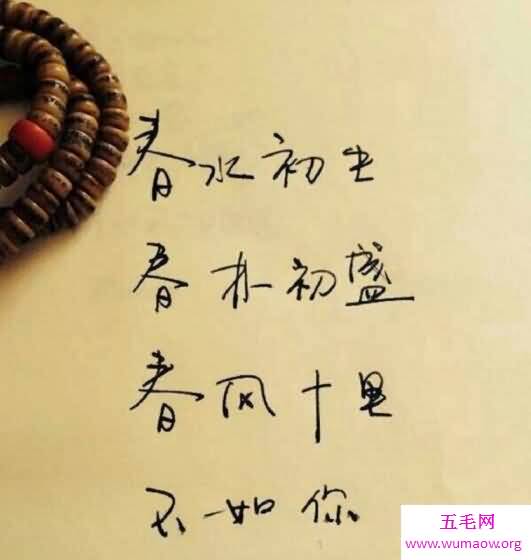 春水初生
春林初盛
春风十里
不如你
五毛网
www.wumaow.org